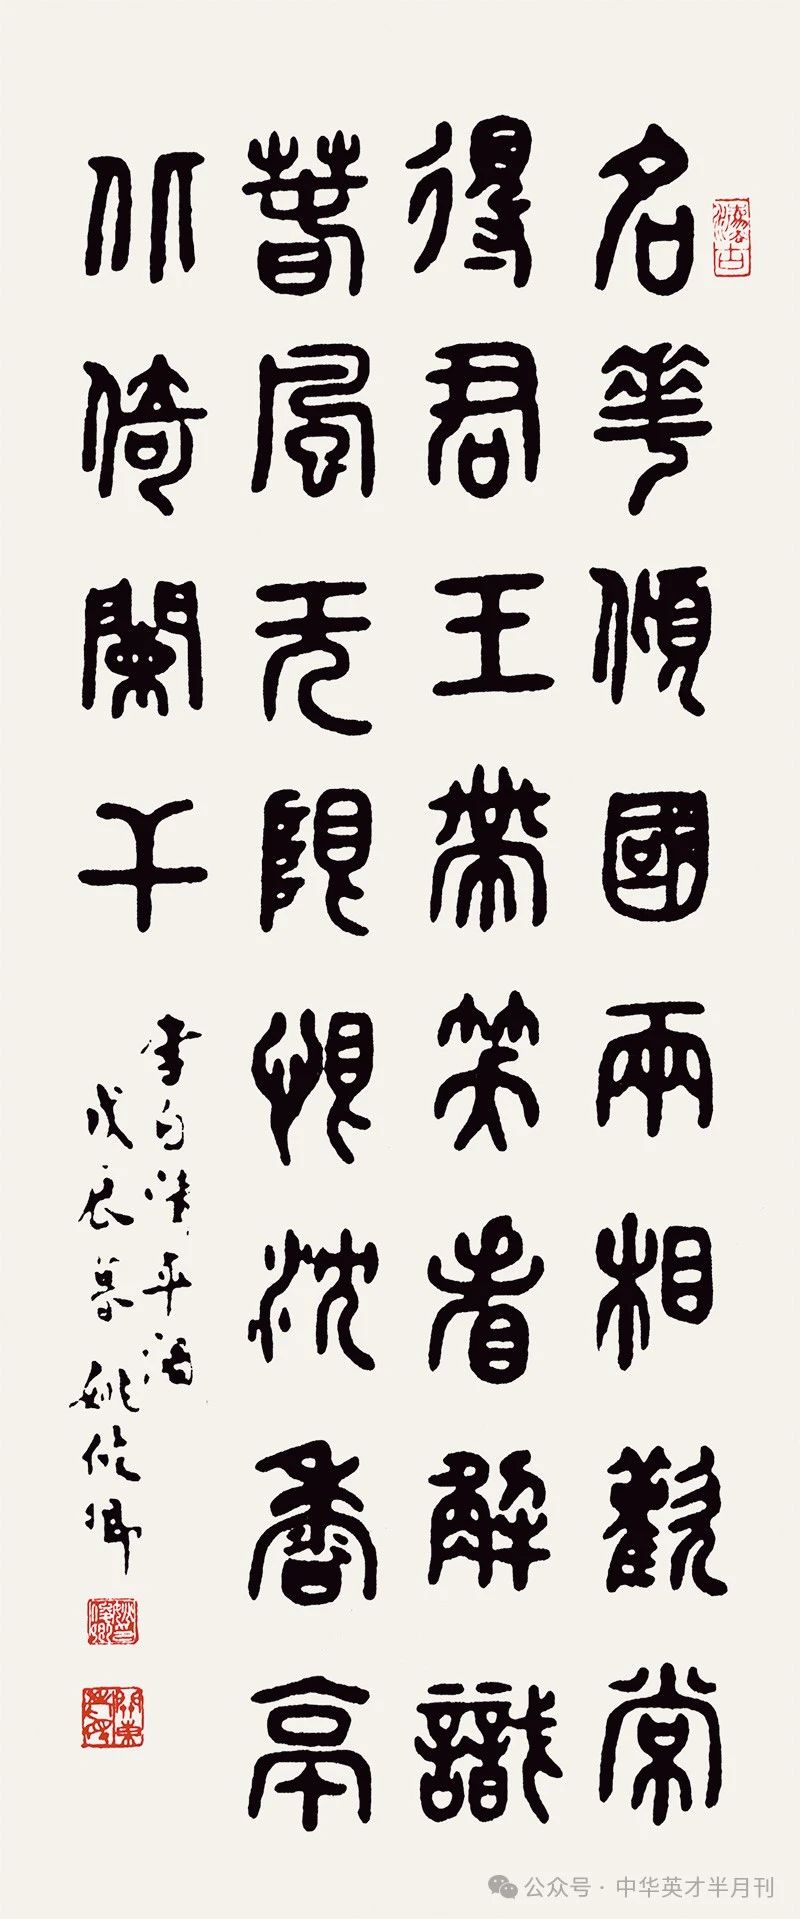 名華傾國兩相歡常
得君王帶笑看解識
春風无限恨沈香亭
北倚闌干
李白清平调
戊辰暮姚俊卿
公众号 · 中华英才半月刊